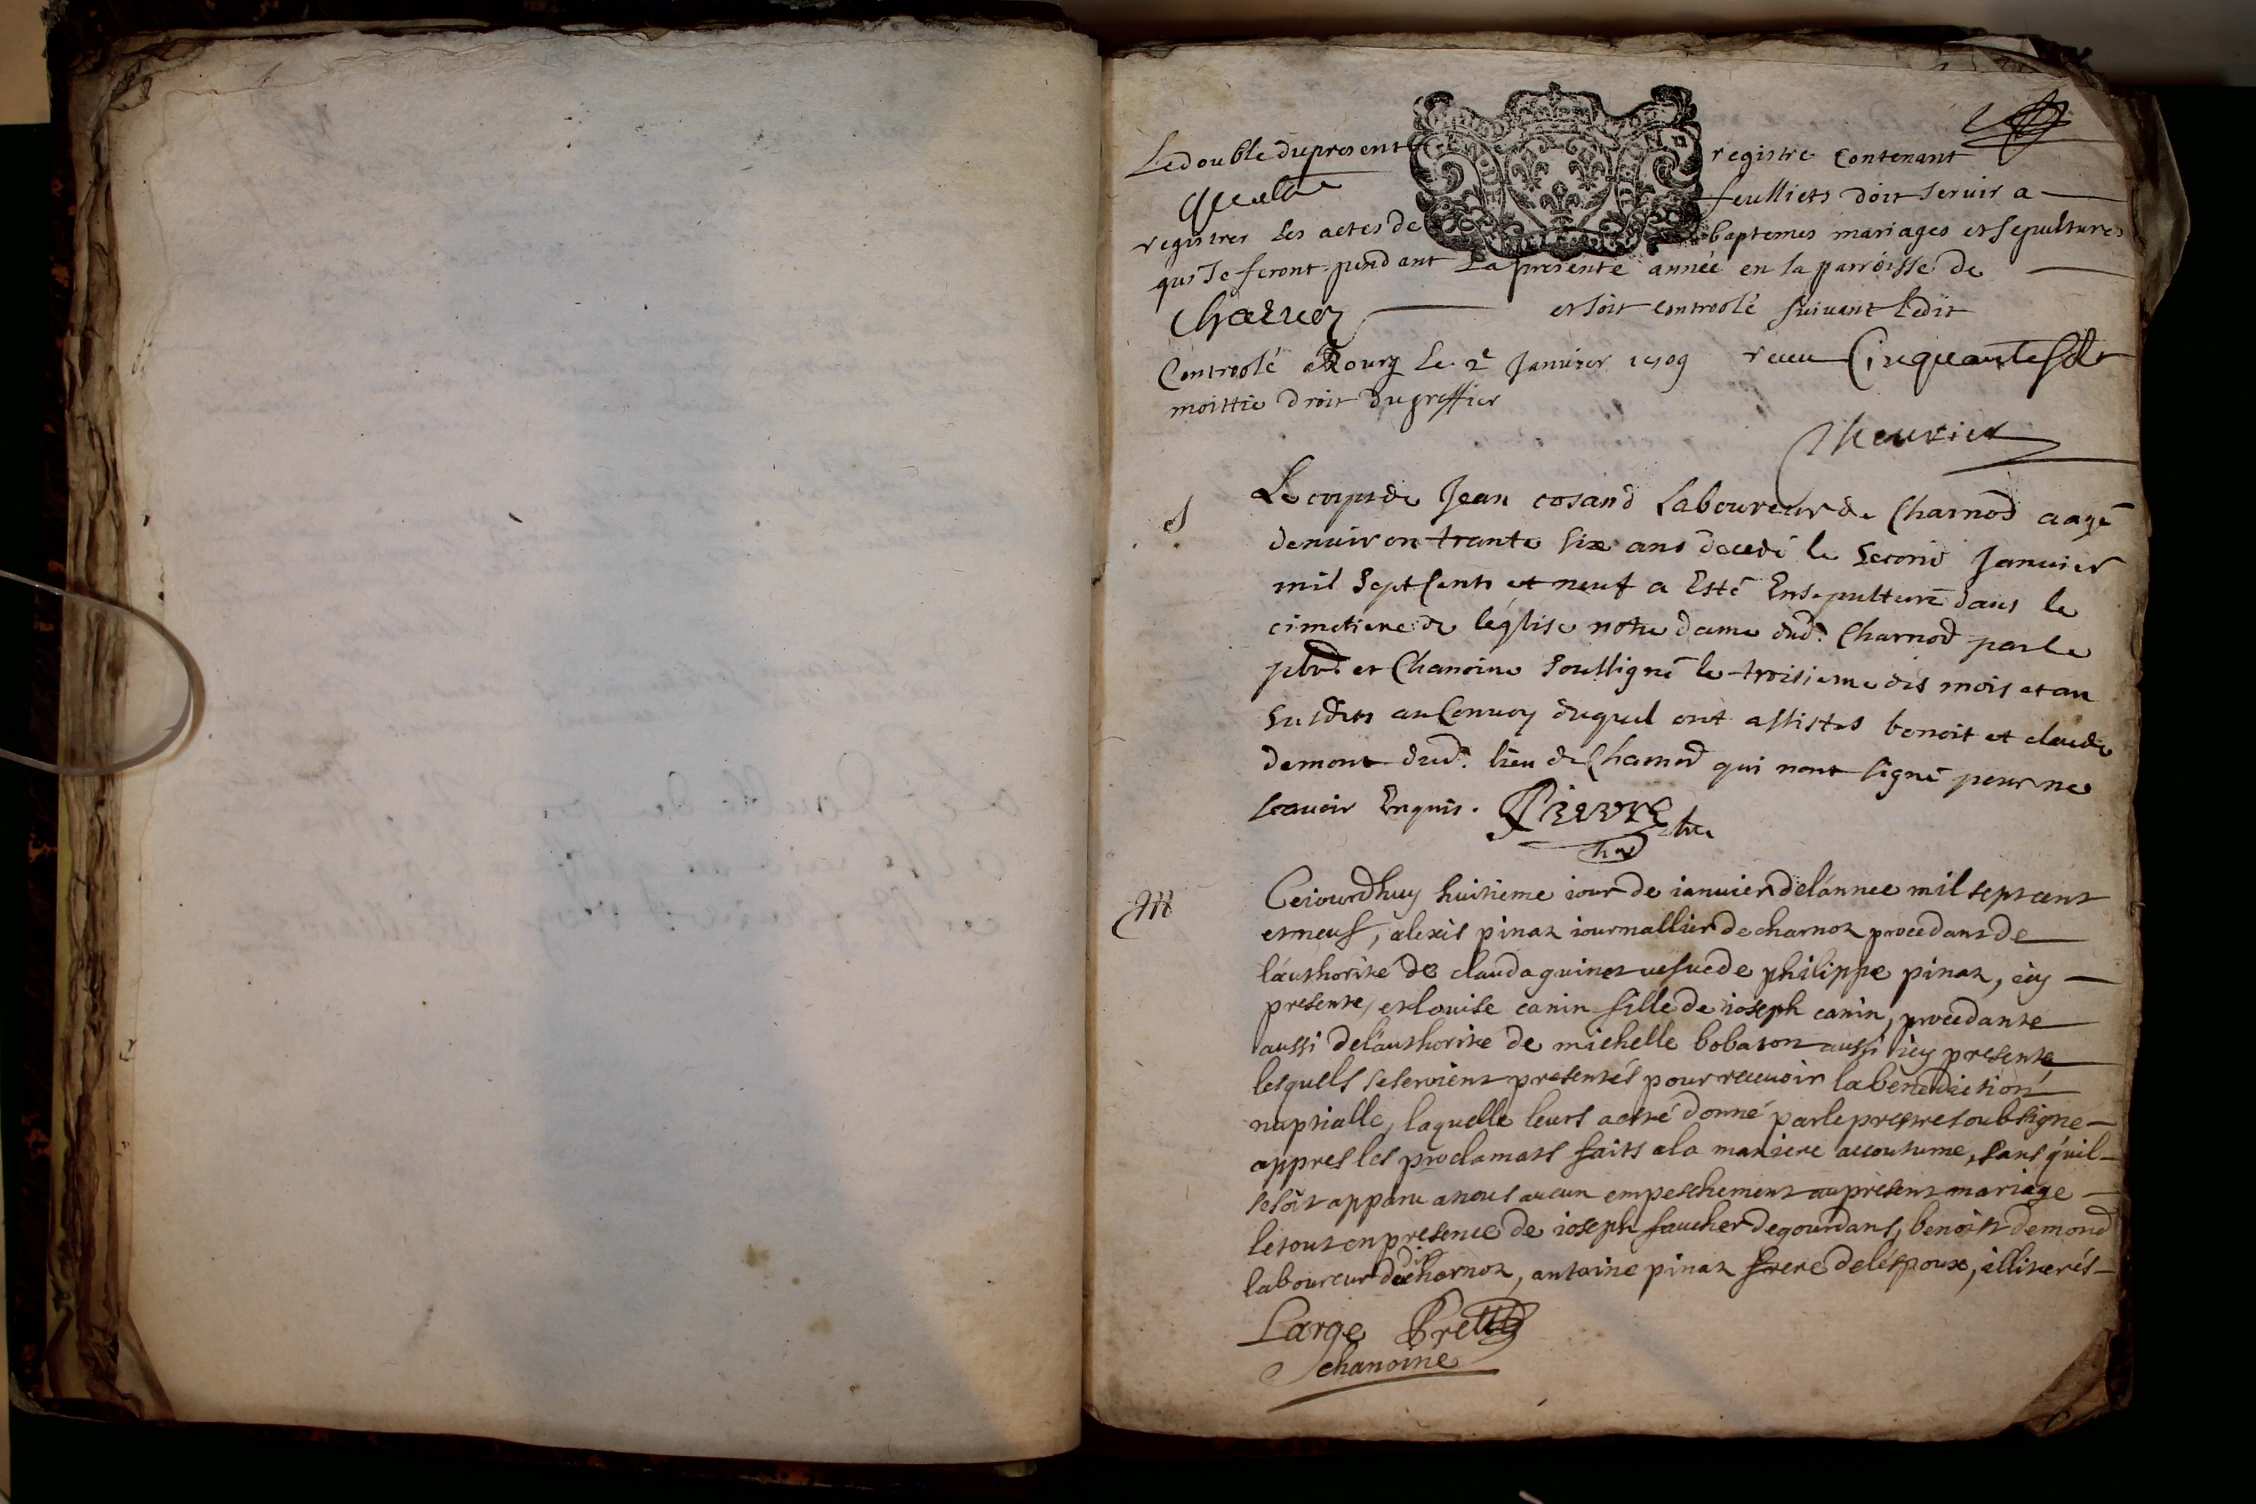 Le double du present registre contenant
feulliets doit servir a
registrer les actes de baptemes mariages et sepultures
qui se feront pendant la presente année en la parroisse de
Charnoz et soit controolé suivant ledit
Controolé a Bourg le 2e Janvier 1709 receu Cinquante sols
moittie droit du greffier
S
Le corps de Jean cosand Laboureur de Charnod aagé
denuiron trante six ans decedé le second Januier
mil sept cents et neuf a Esté Ensepulturé dans le
cimetiere de l'églize notre dame dud. Charnod par le
pbre et Chanoine soussigné le troisieme des mois et an
susdits au Conuoy duquel ont assistes benoit et claude
demont dud. lieu de Charnod qui nont signé pour ne
scauoir Enquis. Pierre pbre
M
Ceiourdhuy huitieme iour de ianuier de lánnee mil sept cent
et neuf, alexis pinaz iournallier de charnoz procedant de
láuthorité de clauda guinet uefue de philippe pinaz, icy
presente, et louise canin fille de ioseph canin, procedante
aussi de láuthorite de michelle bobaton aussi icy presente
lesquels se seroient presentés pour receuoir la benediction
nuptialle, laquelle leurs a esté donné par le prestre soubsigne
appres les proclamats faits a la maniere accoutume, sans quíl
se soit apparu a nous aucun empeschement au present mariage
le tout en presence de ioseph faucher de gourdans, benoist demond
laboureur dudit charnoz, antoine pinaz frere de léspoux, illiterés
Large Pretre
chanoine